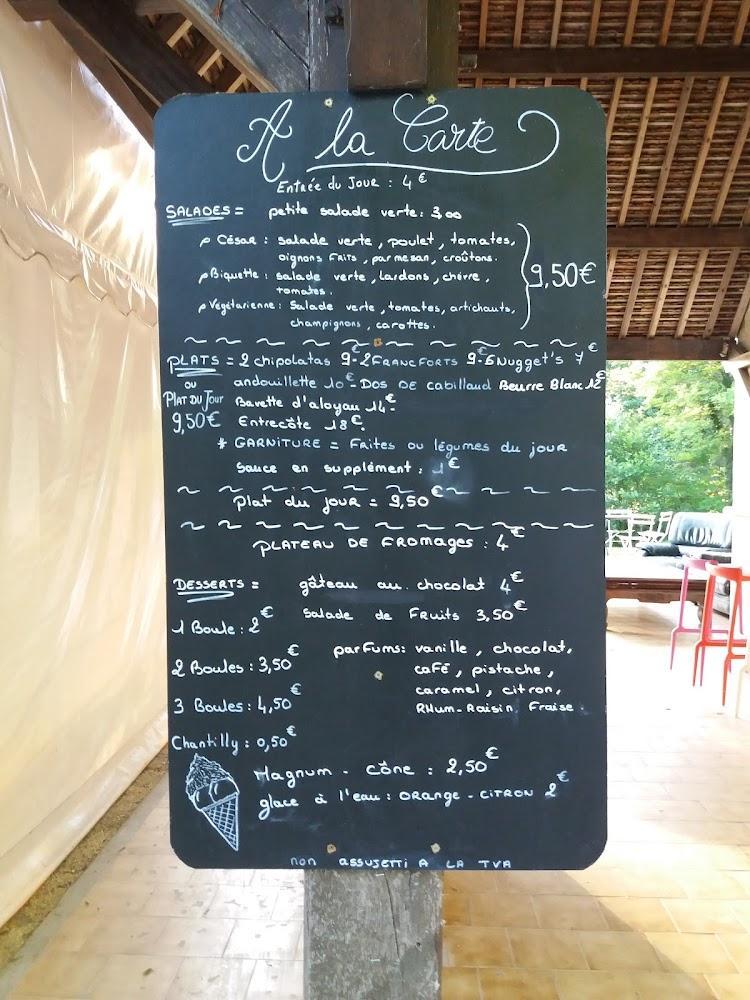 A la Carte
Entrée du Jour : 4€
SALADES = petite salade verte : 3,00
César : salade verte, poulet, tomates,
oignons Frits, parmesan, croûtons.
Biquette : salade verte, lardons, chèvre,
tomates.
9,50€
Végétarienne : Salade verte, tomates, artichauts,
champignons, carottes.
PLATS = 2 chipolatas 9€- 2 FRANCFORTS 9€- 6 Nugget's 7€
ou andouillette 10€- DOS DE cabillaud Beurre Blanc 12€
PLAT DU Jour Bavette d'aloyau 14€-
9,50€ Entrecôte 18€.
* GARNITURE = Frites ou légumes du jour
Sauce en supplément : 1€
Plat du jour = 9,50€
PLATEAU DE FROMAGES : 4€
DESSERTS = gâteau au chocolat 4€
Salade de Fruits 3,50€
1 Boule : 2€
parfums : vanille, chocolat,
2 Boules : 3,50€
café, pistache,
caramel, citron,
3 Boules : 4,50€
RHum-Raisin, Fraise.
Chantilly : 0,50€
Magnum - cône : 2,50€
glace à l'eau : ORange - CITRON 2€
non assujetti A LA TVA